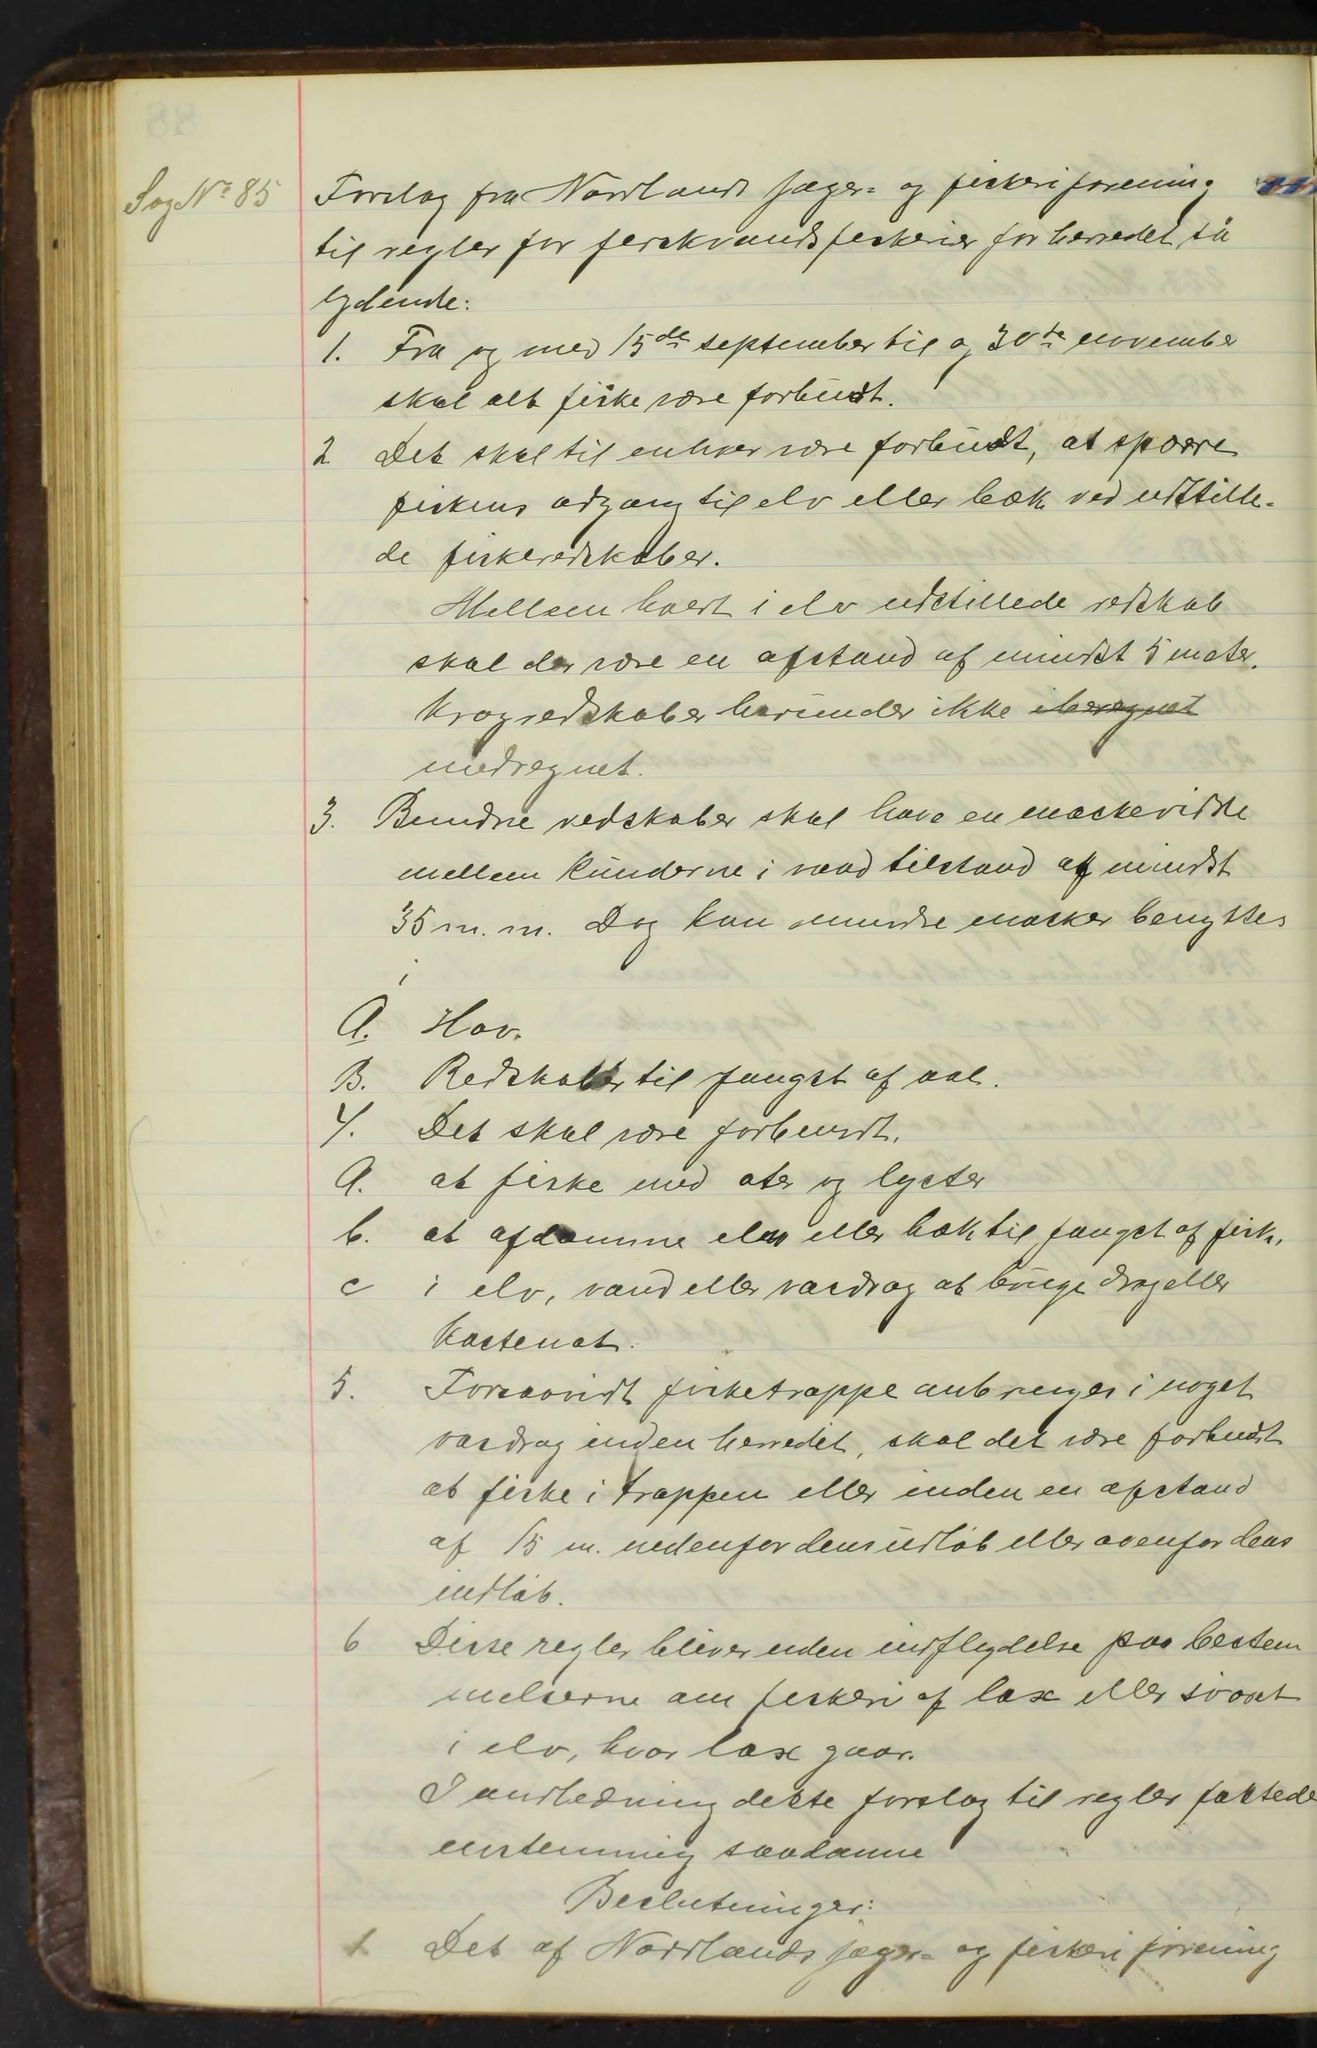 Sag No 85
Forslag fra Nordlands jæger- og fiskeriforening
til regler for ferskvandsfiskerier for herredet så
lydende:
1. Fra og med 15de september til og 30te november
skal alt fiske være forbudt.
2 Det skal til enhver være forbudt, at spærre
fiskens adgang til elv eller bæk ved udstille-
de fiskeredskaber.
Mellem hvert i elv udstillede redskab
skal der være en afstand af mindst 5 meter.
Krogredskaber herunder ikke iberegnet
medregnet.
3. Bundne redskaber skal have en maskevidde
mellem knuderne i vaad tilstand af mindst
35 m.m. Dog kan mindre masker benyttes
i
A. Hov.
B. Redskaber til fangst af aal.
4. Det skal være forbudt.
A. at fiske med oter og lyster
b. at afdæmme elv eller bæk til fangst af fisk.
c i elv, vand eller vasdrag at bruge drag eller
kastenot.
5. Forsaavidt fisketrappe anbringes i noget
vasdrag inden herredet, skal det være forbudt
at fiske i trappen eller inden en afstand
af 15 m. nedenfor dens udløb eller ovenfor dens
indløb.
6 Disse regler bliver uden indflydelse paa bestem
melserne om fiskeri af lax eller søørret
i elv, hvor lax gaar.
I anledning dette forslag til regler fattede
enstemmig saadanne
Beslutninger:
1 Det af Nordlands jæger- og fiskeriforening